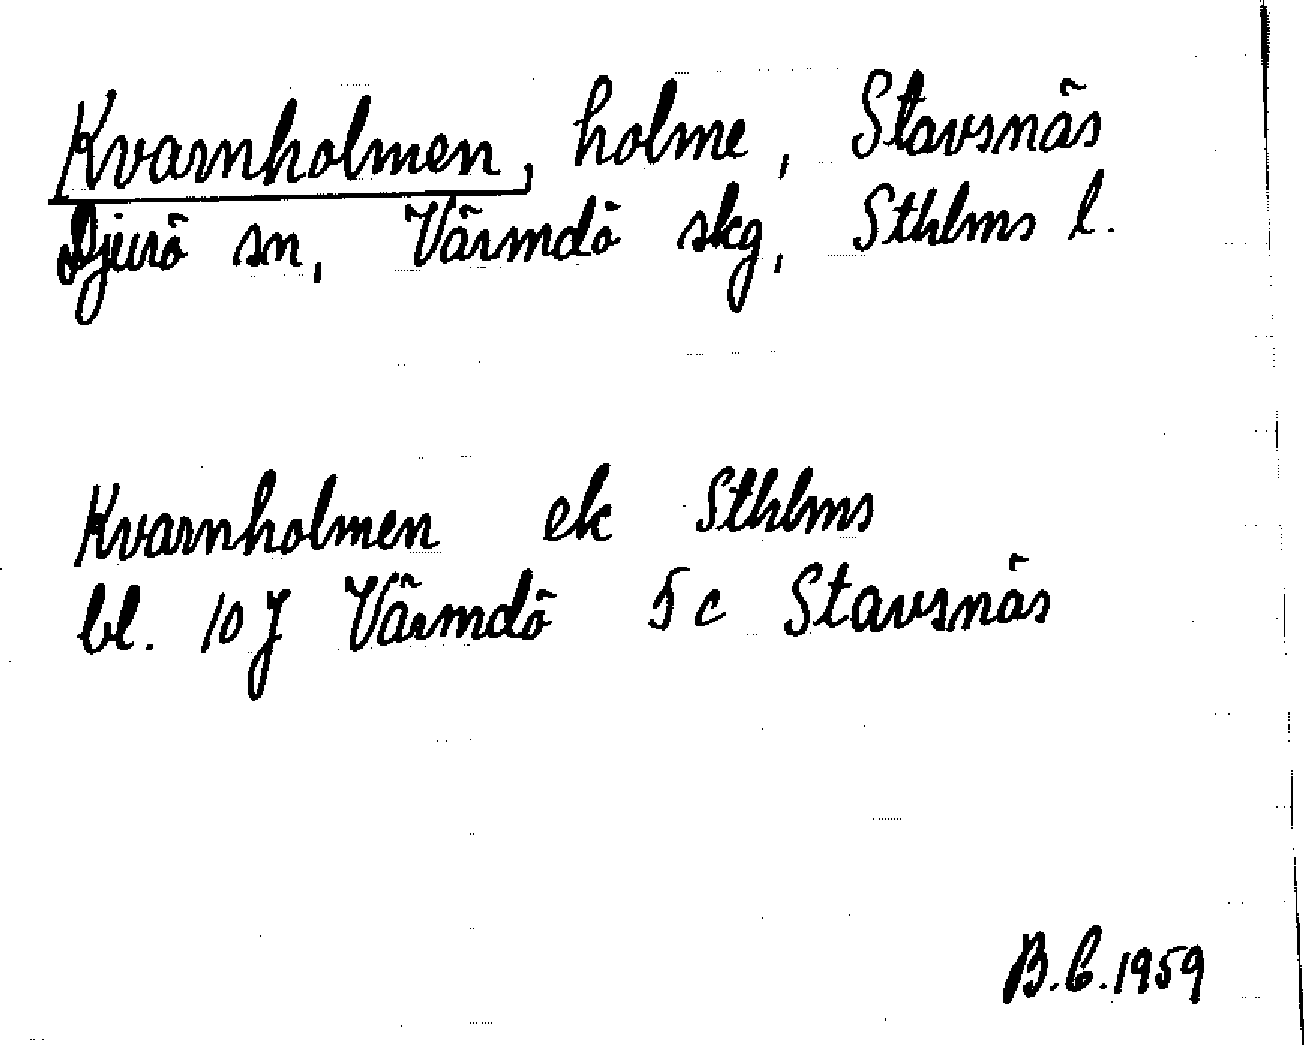 Kvarnholmen, holme, Stavsnäs
Djurö sn, Värmdö skg, Sthlms l.
Kvarnholmen ek Sthlms
bl. 10 J Värmdö 5 c Stavsnäs
B.C. 1959